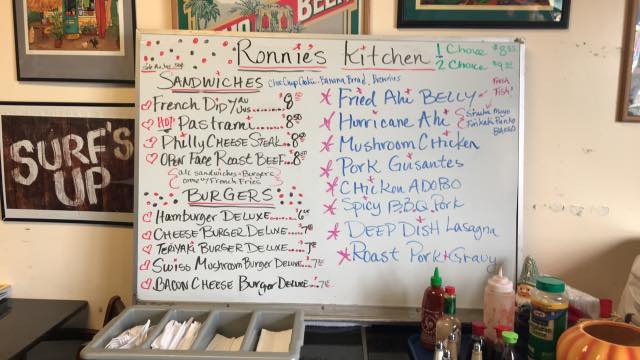 BEER
Ronnie's Kitchen
1 Choice $8.95
2 Choice $9.95
SANDWICHES
Choc Chip Cookie - Banana Bread, Brownies
French Dip w/Au Jus......8
Hot Pastrami.........8
Philly CHEESE STEAK..8
OPEN Face Roast BEEF..8
all sandwiches + Burgers
come w/ French Fries
BURGERS
Hamburger DELUXE......6
CHEESE BURGER DELUXE....7
TERIYAKI BURGER DELUXE....7
Swiss Mushroom Burger DELUXE....7
BACON CHEESE BURGER DELUXE...7
Fried Ahi BELLY
Fresh Fish
Hurricane Ahi
Furikake Panko
Mushroom Chicken
Pork Guisantes
CHicken ADOBO
Spicy B.B.Q. Pork
DEEP DISH Lasagna
Roast Pork + Gravy
SURF'S
UP